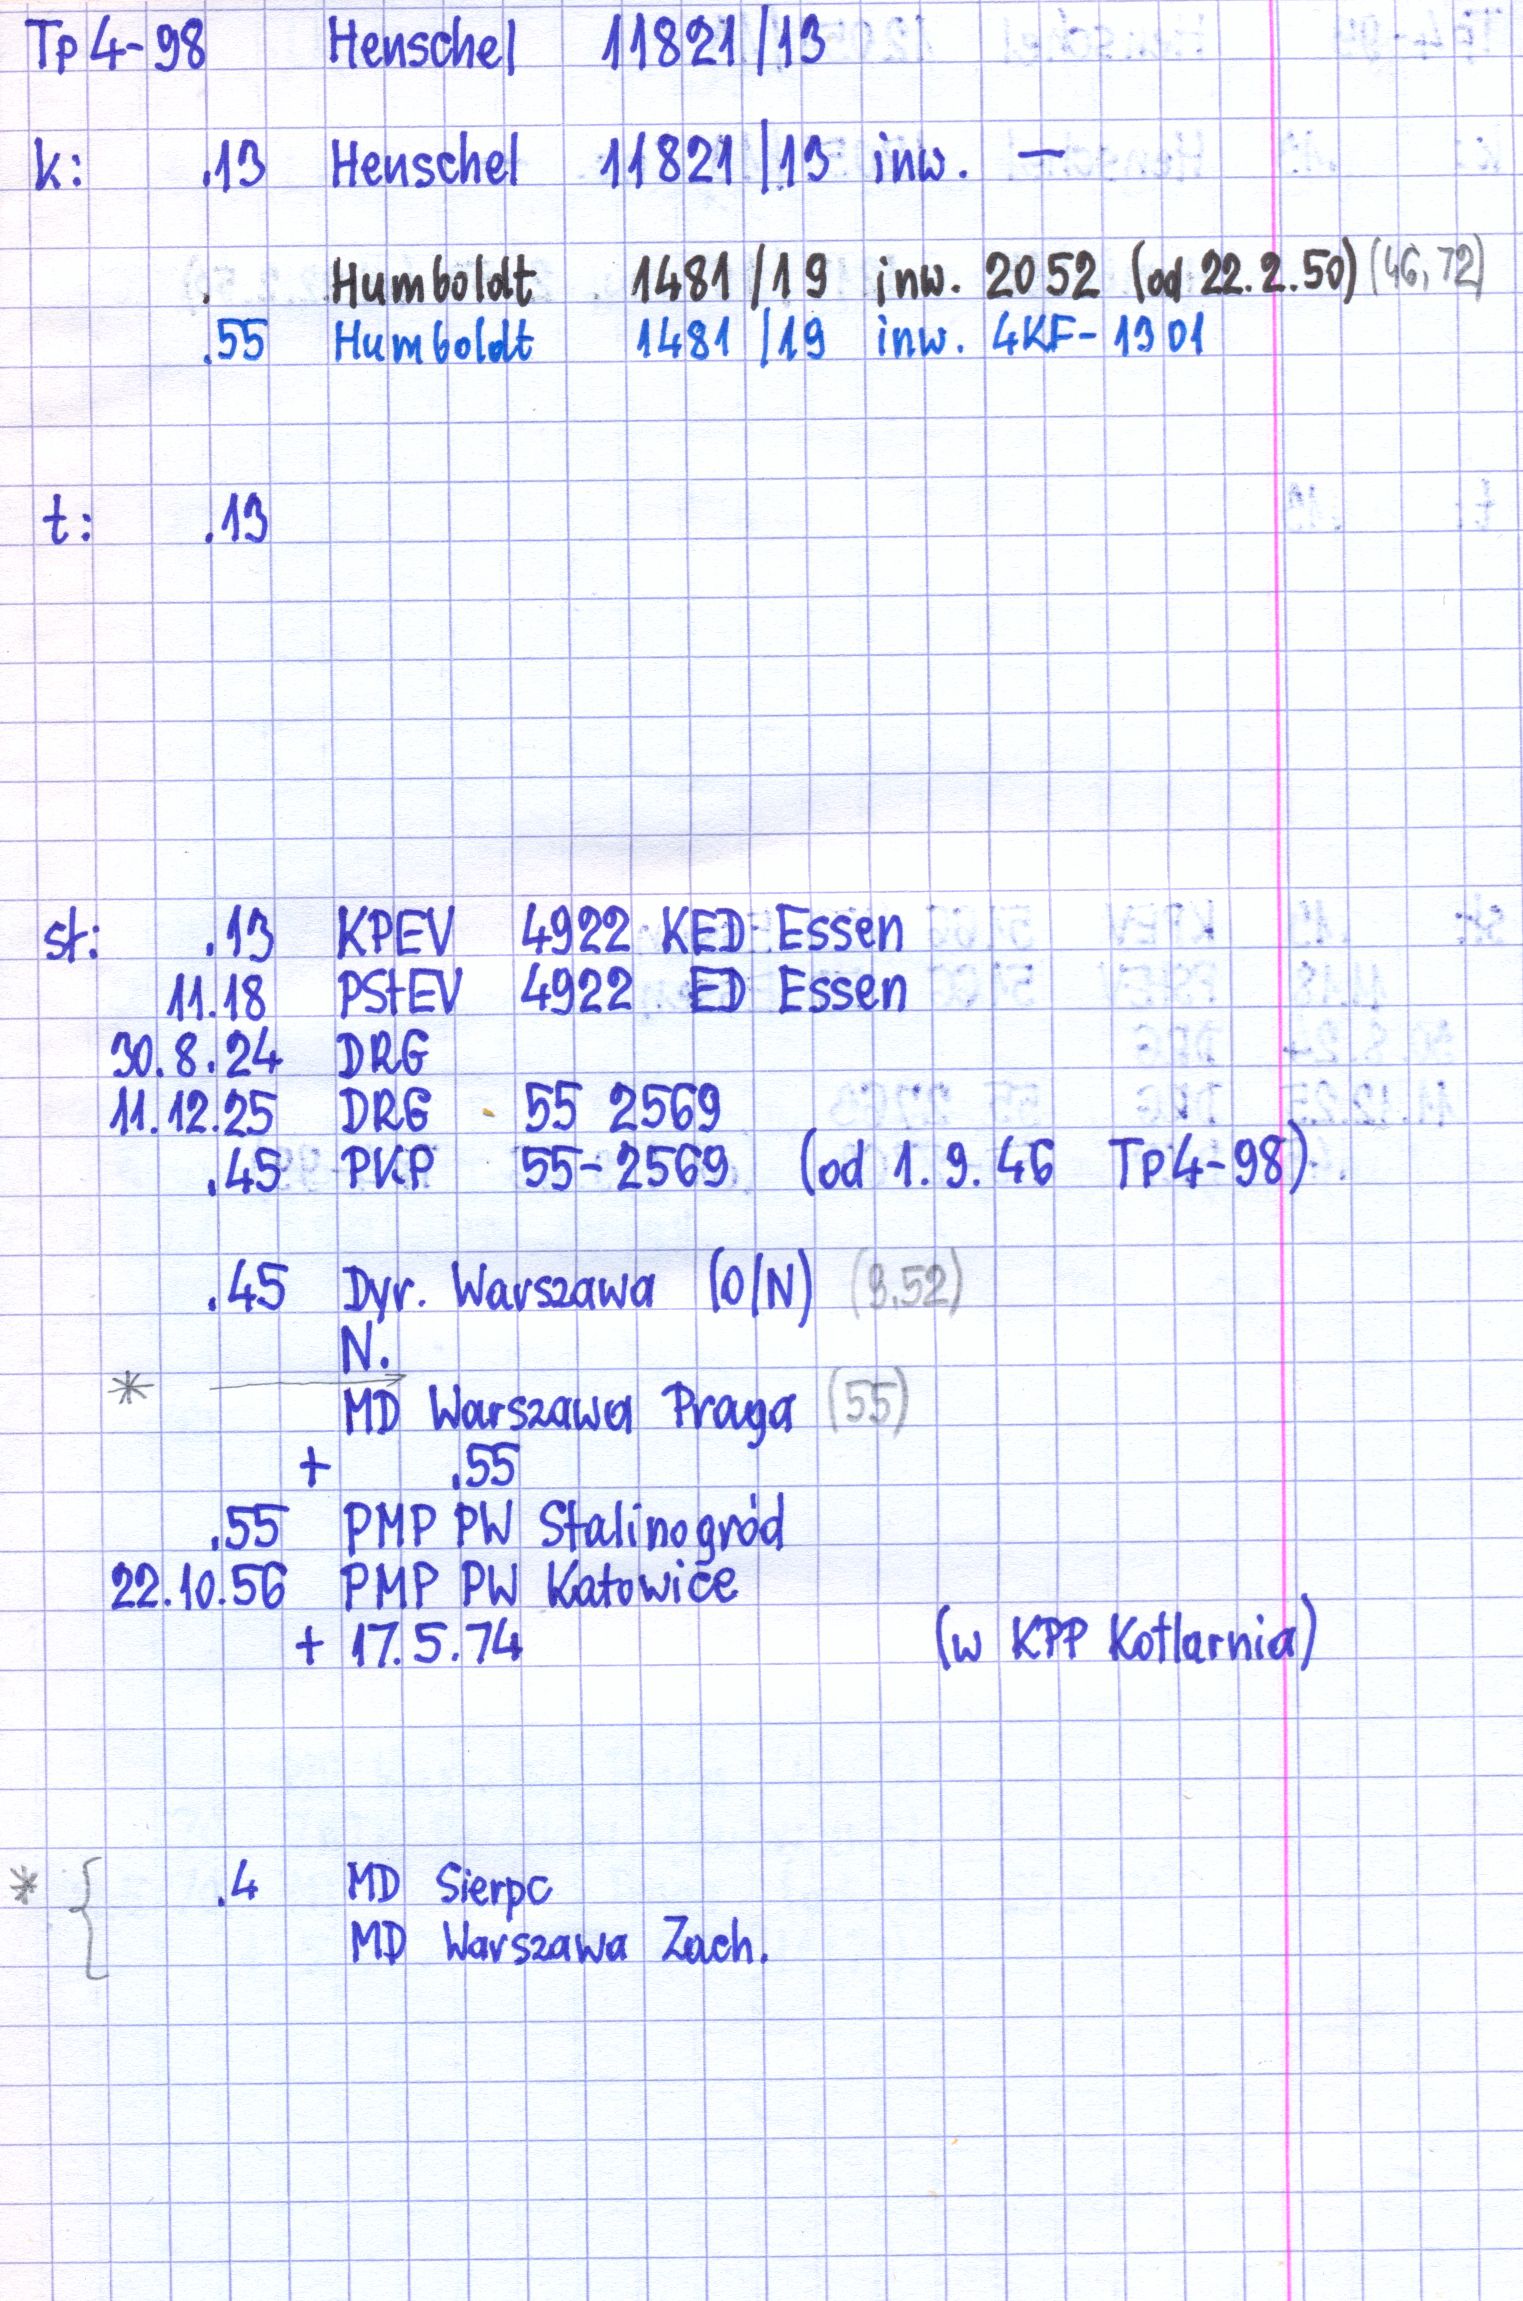 Tp4-98 Henschel 11821/13
k: .13 Henschel 11821/13 inw. —
. Humboldt 1481/19 inw. 2052 (od 22.2.50) (46,72)
.55 Humboldt 1481/19 inw. 4KF-1301
t: .13
st: .13 KPEV 4922 KED Essen
11.18 PStEV 4922 ED Essen
30.8.24 DRG
11.12.25 DRG 55 2569
.45 PKP 55-2569 (od 1.9.46 Tp4-98)
.45 Dyr. Warszawa (O/N) (9,52)
N.
* MD Warszawa Praga (55)
+ .55
.55 PMP PW Stalinogród
22.10.56 PMP PW Katowice
+ 17.5.74 (w KPP Kotlarnia)
* { .4 MD Sierpc
MD Warszawa Zach.